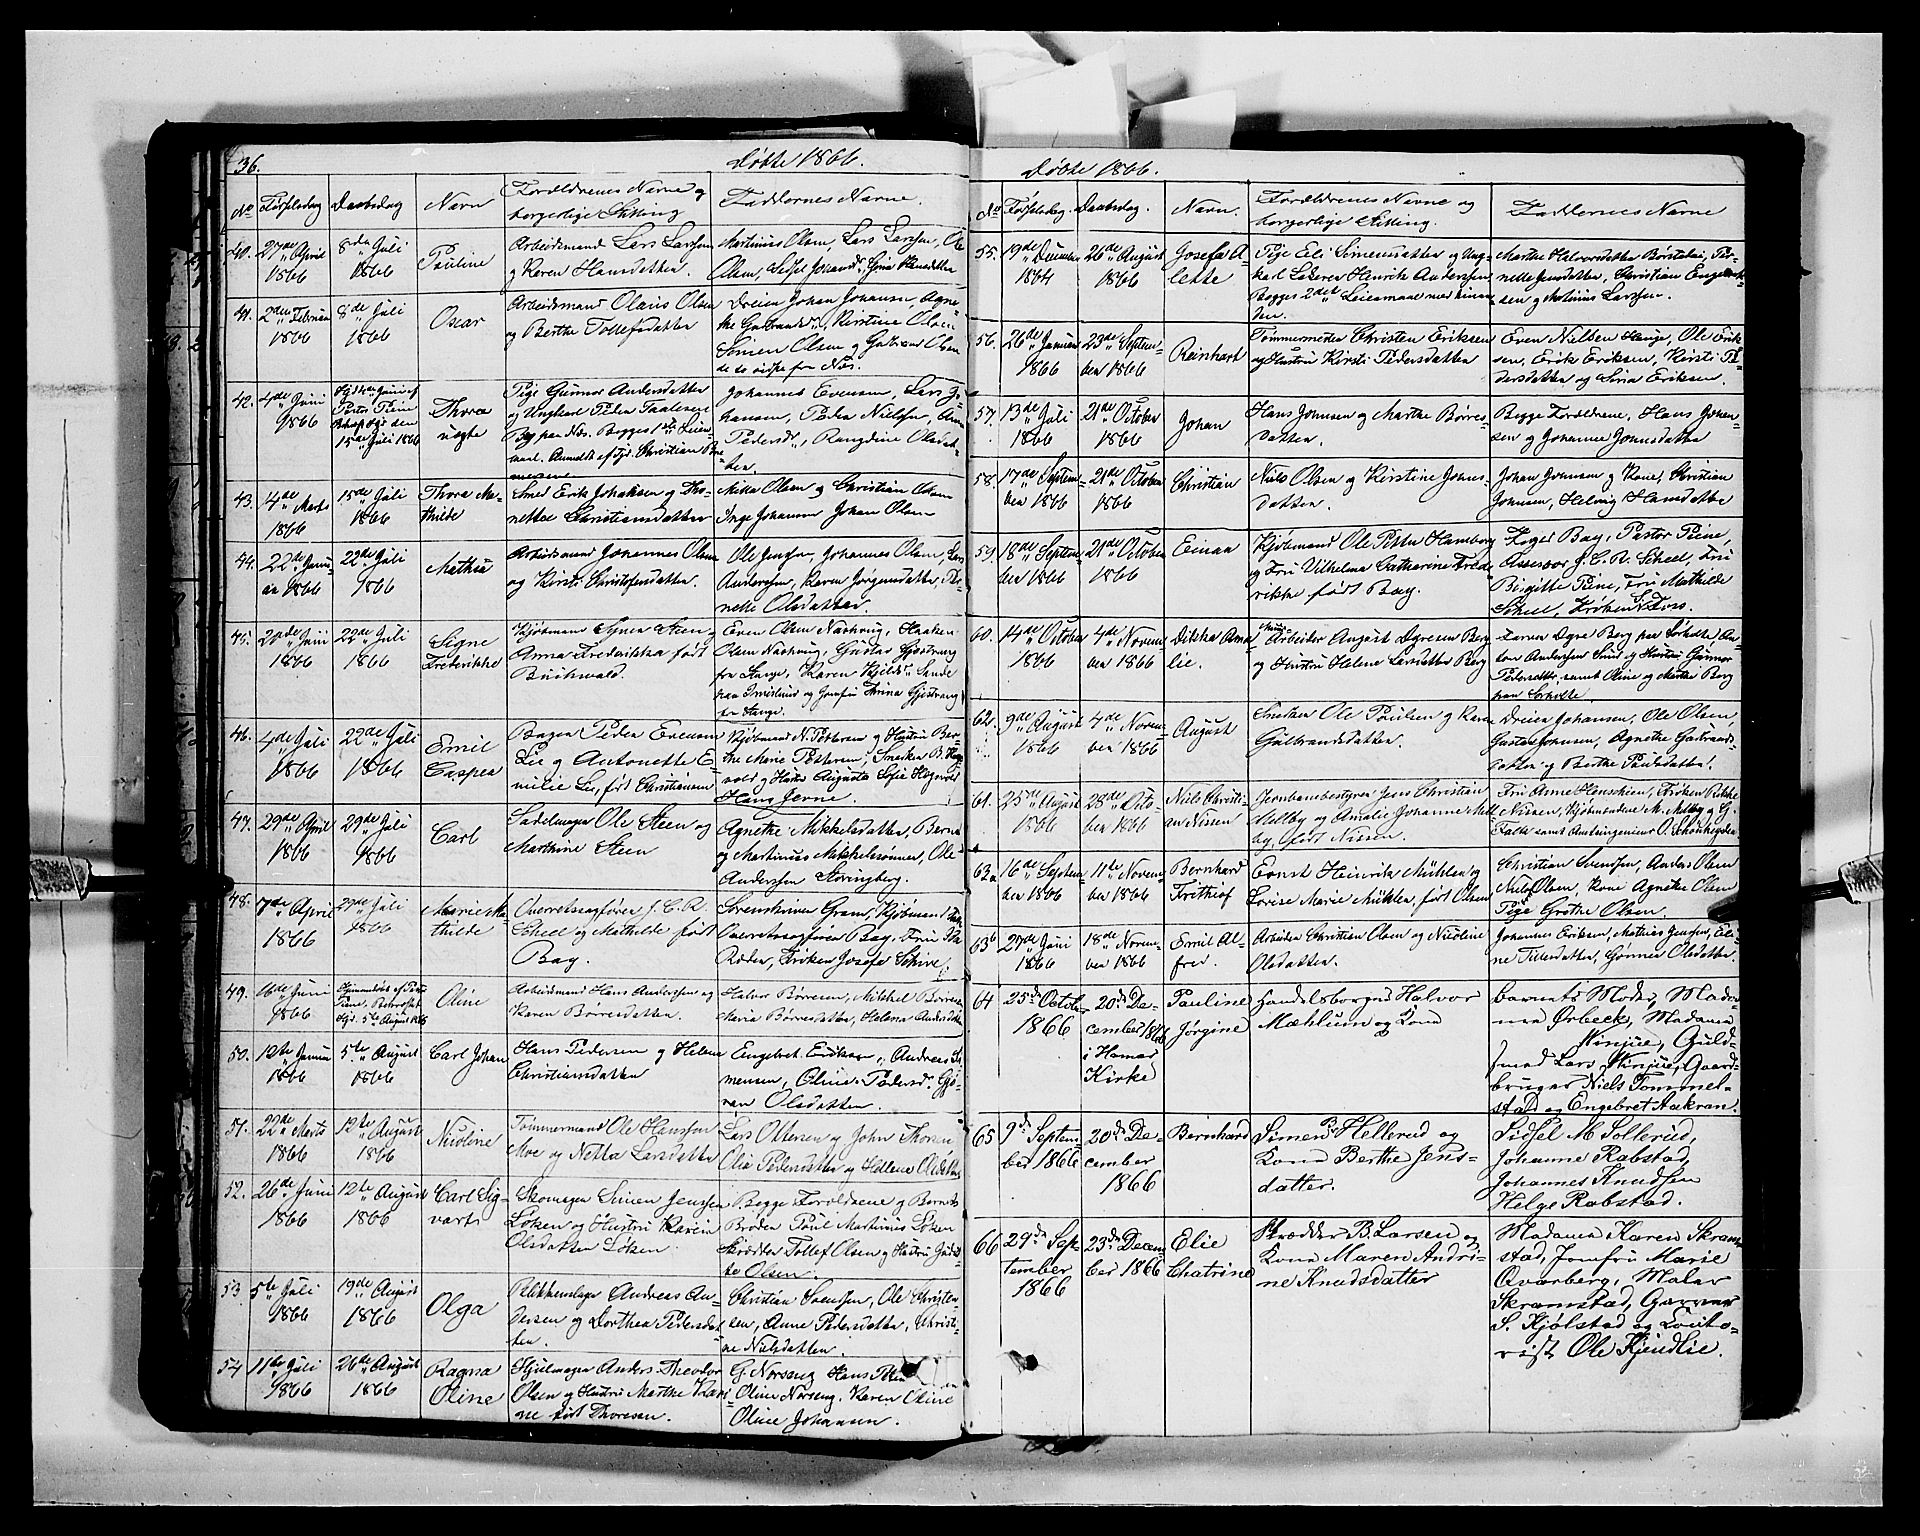 36.
Døbte 1866.
No Fødselsdag Daabsdag Navn Forældrenes Navne og borgerlige Stilling Faddernes Navne.
40. 27de April 1866
8de Juli 1866
Pauline
Arbeidsmand Lars Larssen
og Karen Hansdatter.
Martinius Olsen, Lars Larssen, Ole
Olsen, Sidsel Johansd., Gina Hansdatter
41. 2den Februar 1866
8de Juli 1866
Oscar
Arbeidsmand Olaus Olsen
og Berthe Tollefsdatter
Dreier Johan Johansen, Agne-
the Gulbrandsd., Kirstine Olsen
Simen Olsen og Gulbrand Olsen
de to sidste fra Næs.
42. 4de Juni 1866
Hjdbt. Juni af
Pastor Piene
15de Juli 1866
Thora
uægte
Pige Gunnor Andersdatter
og Ungkarl Peder
paa Næs. Begges 1ste Leier-
maal. Anmeldt af Fgd. Christian
Johannes Evensen, Lars Jo-
hansen, Peder Nielsen, Anne
Pedersd., Rangdine Olsdat-
ter.
43. 4de Marts 1866
15de Juli 1866
Thora Ma-
thilde
Smed Erik Johansen og Tho-
nette Christiansdatter
Mikkel Olsen og Christian Olsen
Inge Johannes Johan Olsen
44. 22de Janu-
ar 1866
22de Juli 1866
Mathea
Arbeidsmand Johannes Olsen
og Kirsti Christofersdatter.
Ole Jenssen, Johannes Olsen, Lars
Andersen, Karen Jørgensdatter, Per-
nelle Olsdatter.
45. 20de Juni 1866
22de Juli 1866
Signe
Frederikke
Kjøbmand Syver Steen og
Anna Frederikka født
Buchwald.
Even Olsen Nashoug, Haaken
Olsen Nashoug, Gustav Gjestvang
fra Stange, Karen Kjeldsd. Sande
paa Imislund og Jomfru Thrina Gjestvang
fr Stange.
46. 4de Juli 1866
22de Juli 1866
Emil
Casper
Bager Peder Evensen
Lie og Antonette E-
milie Lie, født Christiansen
Kjøbmand N. Pettersen og Hustru Ber-
the Marie Pettersen, Snedker B. Hag-
vold og Hustru Augusta Sofie Hagevold
Hans Jerne.
47. 29de April 1866
29de Juli 1866
Carl
Sadelmager Ole Steen og
Marthine Steen
Agnethe Mikkelsdatter, Bernt
og Martinus Mikkelsønner, Ole
Andersen Storingberg.
48. 7de April 1866
29de Juli 1866
Marie Ma-
thilde
Overretssagfører J. C. R.
Scheel og Mathilde født
Bay.
Sorenskriver Gram, Kjøbmand
Overretssagfører Bay, Fru
Frøken Josefa Schive.
49. 16de Juni 1866
Hjemmedøbt af Pastor
Piene, Bekræftet
5te August 1866
Oline
Arbeidsmand Hans Andersen og
Karen Børresdatter.
Halvor Børresen, Mikkel Børresen
Maria Børresdatter, Helena Andersdatter
50. 12te Januar 1866
5te August 1866
Carl Johan
Hans Pedersen og Helene
Christiansdatter
Engebret Eriksen, Andreas Si-
mensen, Oline Pedersd. Gjø-
ran Olsdatter.
51. 22de Marts 1866
12te August 1866
Nicoline
Tømmermand Ole Hanssen
Moe og Netta Larsdatter
Lars Ottesen og John Thoresen
Olia Pedersdatter og Hellene Olsdatter
52. 26de Juni 1866
12te August 1866
Carl Sig-
vart
Skomager Simen Jenssen
Løken og Hustru Karen
Olsdatter Løken.
Begge Forældrene og Barnets
Broder Poul Martinius Løken
Skrædder Tollef Olsen og Hustru
Olsen.
53. 5te Juli 1866
19de August 1866
Olga
Blikkenslager Andreas An-
dersen og Dorthea Pedersdat-
ter.
Christian Svendsen, Ole Christen-
sen, Anne Pedersdatter, Christi-
ne Nielsdatter.
54 11te Juli 1866
26de August 1866
Ragna
Oline
Hjulmager Anders Theodor
Olsen og Hustru Marthe Kari-
ne født Thoresen.
G. Norseng Hans
Oline Norseng. Karen Oline
Oline Johansen.
Døbte 1866.
No Fødselsdag Daabsdag. Navn. Forældrenes Navne og borgerlige Stilling. Faddernes Navne
55. 19de December 1864
26de August 1866
Josefa A-
lette
Pige Eli Simensdatter og Ung-
karl Læderen Henrik Andersen
Begges 2det Leiermaal med hinan-
den.
Marthe Halvorsdatter Børstad, Per-
nelle Jensdatter, Christian Engebret-
sen og Martinius Larssen.
56. 26de Januar 1866
23de Septem-
ber 1866
Reinhart
Tømmermester Christen Eriksen
og Hustru Kirsti Pedersdatter
Even Nielsen Hauge, Ole Erik-
sen, Erik Eriksen, Kirsti Pe-
dersdatter og Lina Eriksen.
57. 13de Juli 1866
21de October 1866
Johan
Hans Johnsen og Marthe Børres-
datter.
Begge Forældrene, Hans Johan-
sen og Johanne Johnsdatter
58. 17de Septem-
ber 1866
21de October 1866
Christian
Niels Olsen og Kirstine Johns-
datter.
Johan Johnsen og Kone, Christian
Johnsen, Helvig Hansdatter
59. 18de Septem-
ber 1866
21de October 1866
Einar
Kjøbmand Ole Petter Hamborg
og Fru Vilhelma Catharine Frede-
rikke født Bay.
Foged Bay, Pastor Piene,
Assessor J. C. R. Scheel, Fru
Birgitte Piene, Fru Mathilde
Scheel, Frøken S. Foss.
60. 14de October 1866
4de Novem-
ber 1866
Dikka Ama-
lie.
Arbeider August Dyresen Berg
og Hustru Helene Larsdatter Berg
Faren Dyre Berg paa Sørholte An-
ton Andersen Lund og Hustru Gunnor
Pedersdtr. samt Oline og Marthe Berg
paa Sørholte
62. 9de August 1866
4de Novem-
ber 1866
August
Snedker Ole Poulsen og Karen
Gulbrandsdatter.
Dreier Johansen, Ole Olsen,
Gustav Johnsen, Agnethe Gulbrands-
datter og Berthe Paulsdatter.
61. 25de August 1866
28de Octo-
ber 1866
Niels Christi-
an Nissen
Jernbanebestyrer Jens Christian
Melby og Amalie Johanne Mel-
by, født Nissen.
Fru Anne Henschien, Frøken Rikke
Nissen, Kjøbmændene M. Melby og G.
Falke samt Amtsingeniør O. Skougaard
63a 16de Septem-
ber 1866
11te Novem-
ber 1866
Bernhard
Frithiof
Ernst Heinrik Mühler og
Lovise Marie Mühler, født Olsen
Christian Svendsen, Anders Olsen
Niels Olsen, Kone Agnethe Olsen
Pige Grethe Olsen.
63b 27de Juni 1866
18de Novem-
ber 1866
Emil Al-
fred.
Arbeider Christian Olsen og Nicoline
Olsdatter.
Johannes Eriksen, Mathias Jensen, Eli-
ne Tillesdatter, Gunner Olsdatter.
64 25de Octobr 1866
20de De-
cember 1866
i Hamar
Kirke
Pauline
Jørgine
Handelsborger Halvor
Mæhlum og Kone
barnets Moder, Mada-
me Ørbeck, Madame
Winjue, Guld-
smed Lars Winjue, Gaard-
bruger Niels Tommel-
stad og Engebret Aakran.
65 9de Septem-
ber 1866
20de De-
cember
1866
Bernhard
Simen P. Hellerud og
Kone Berthe Jens-
datter.
Sidsel M. Sollerud,
Johanne Rabstad,
Johannes Knudsen
Helge Rabstad.
66 29de Sep-
tember
1866
23de Decem-
ber 1866
Elie
Chatrine
Skrædder B. Larsen og
Kone Maren Andri-
ne Knudsdatter
Madame Karen Skram-
stad, Jomfru Marie
Qvarberg, Maler
Skramstad, Garver
S. Kjølstad og Louito-
rist Ole Kjendlie.